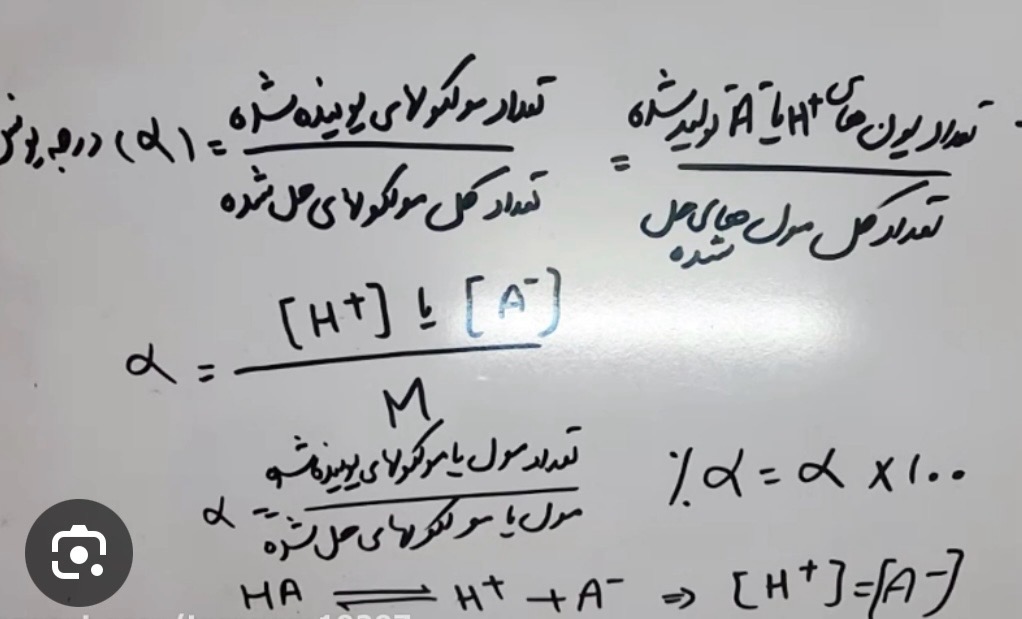 درجه یونش (α) = تعداد مولکولهای یونیده شده / تعداد کل مولکولهای حل شده = تعداد یون های H⁺ یا A⁻ تولید شده / تعداد کل مول های حل شده
α = [H⁺] یا [A⁻] / M
α = تعداد مول یا مولکولهای یونیده شده / مول یا مولکولهای حل شده
٪α = α × ۱۰۰
HA ⇌ H⁺ + A⁻ ⇒ [H⁺] = [A⁻]